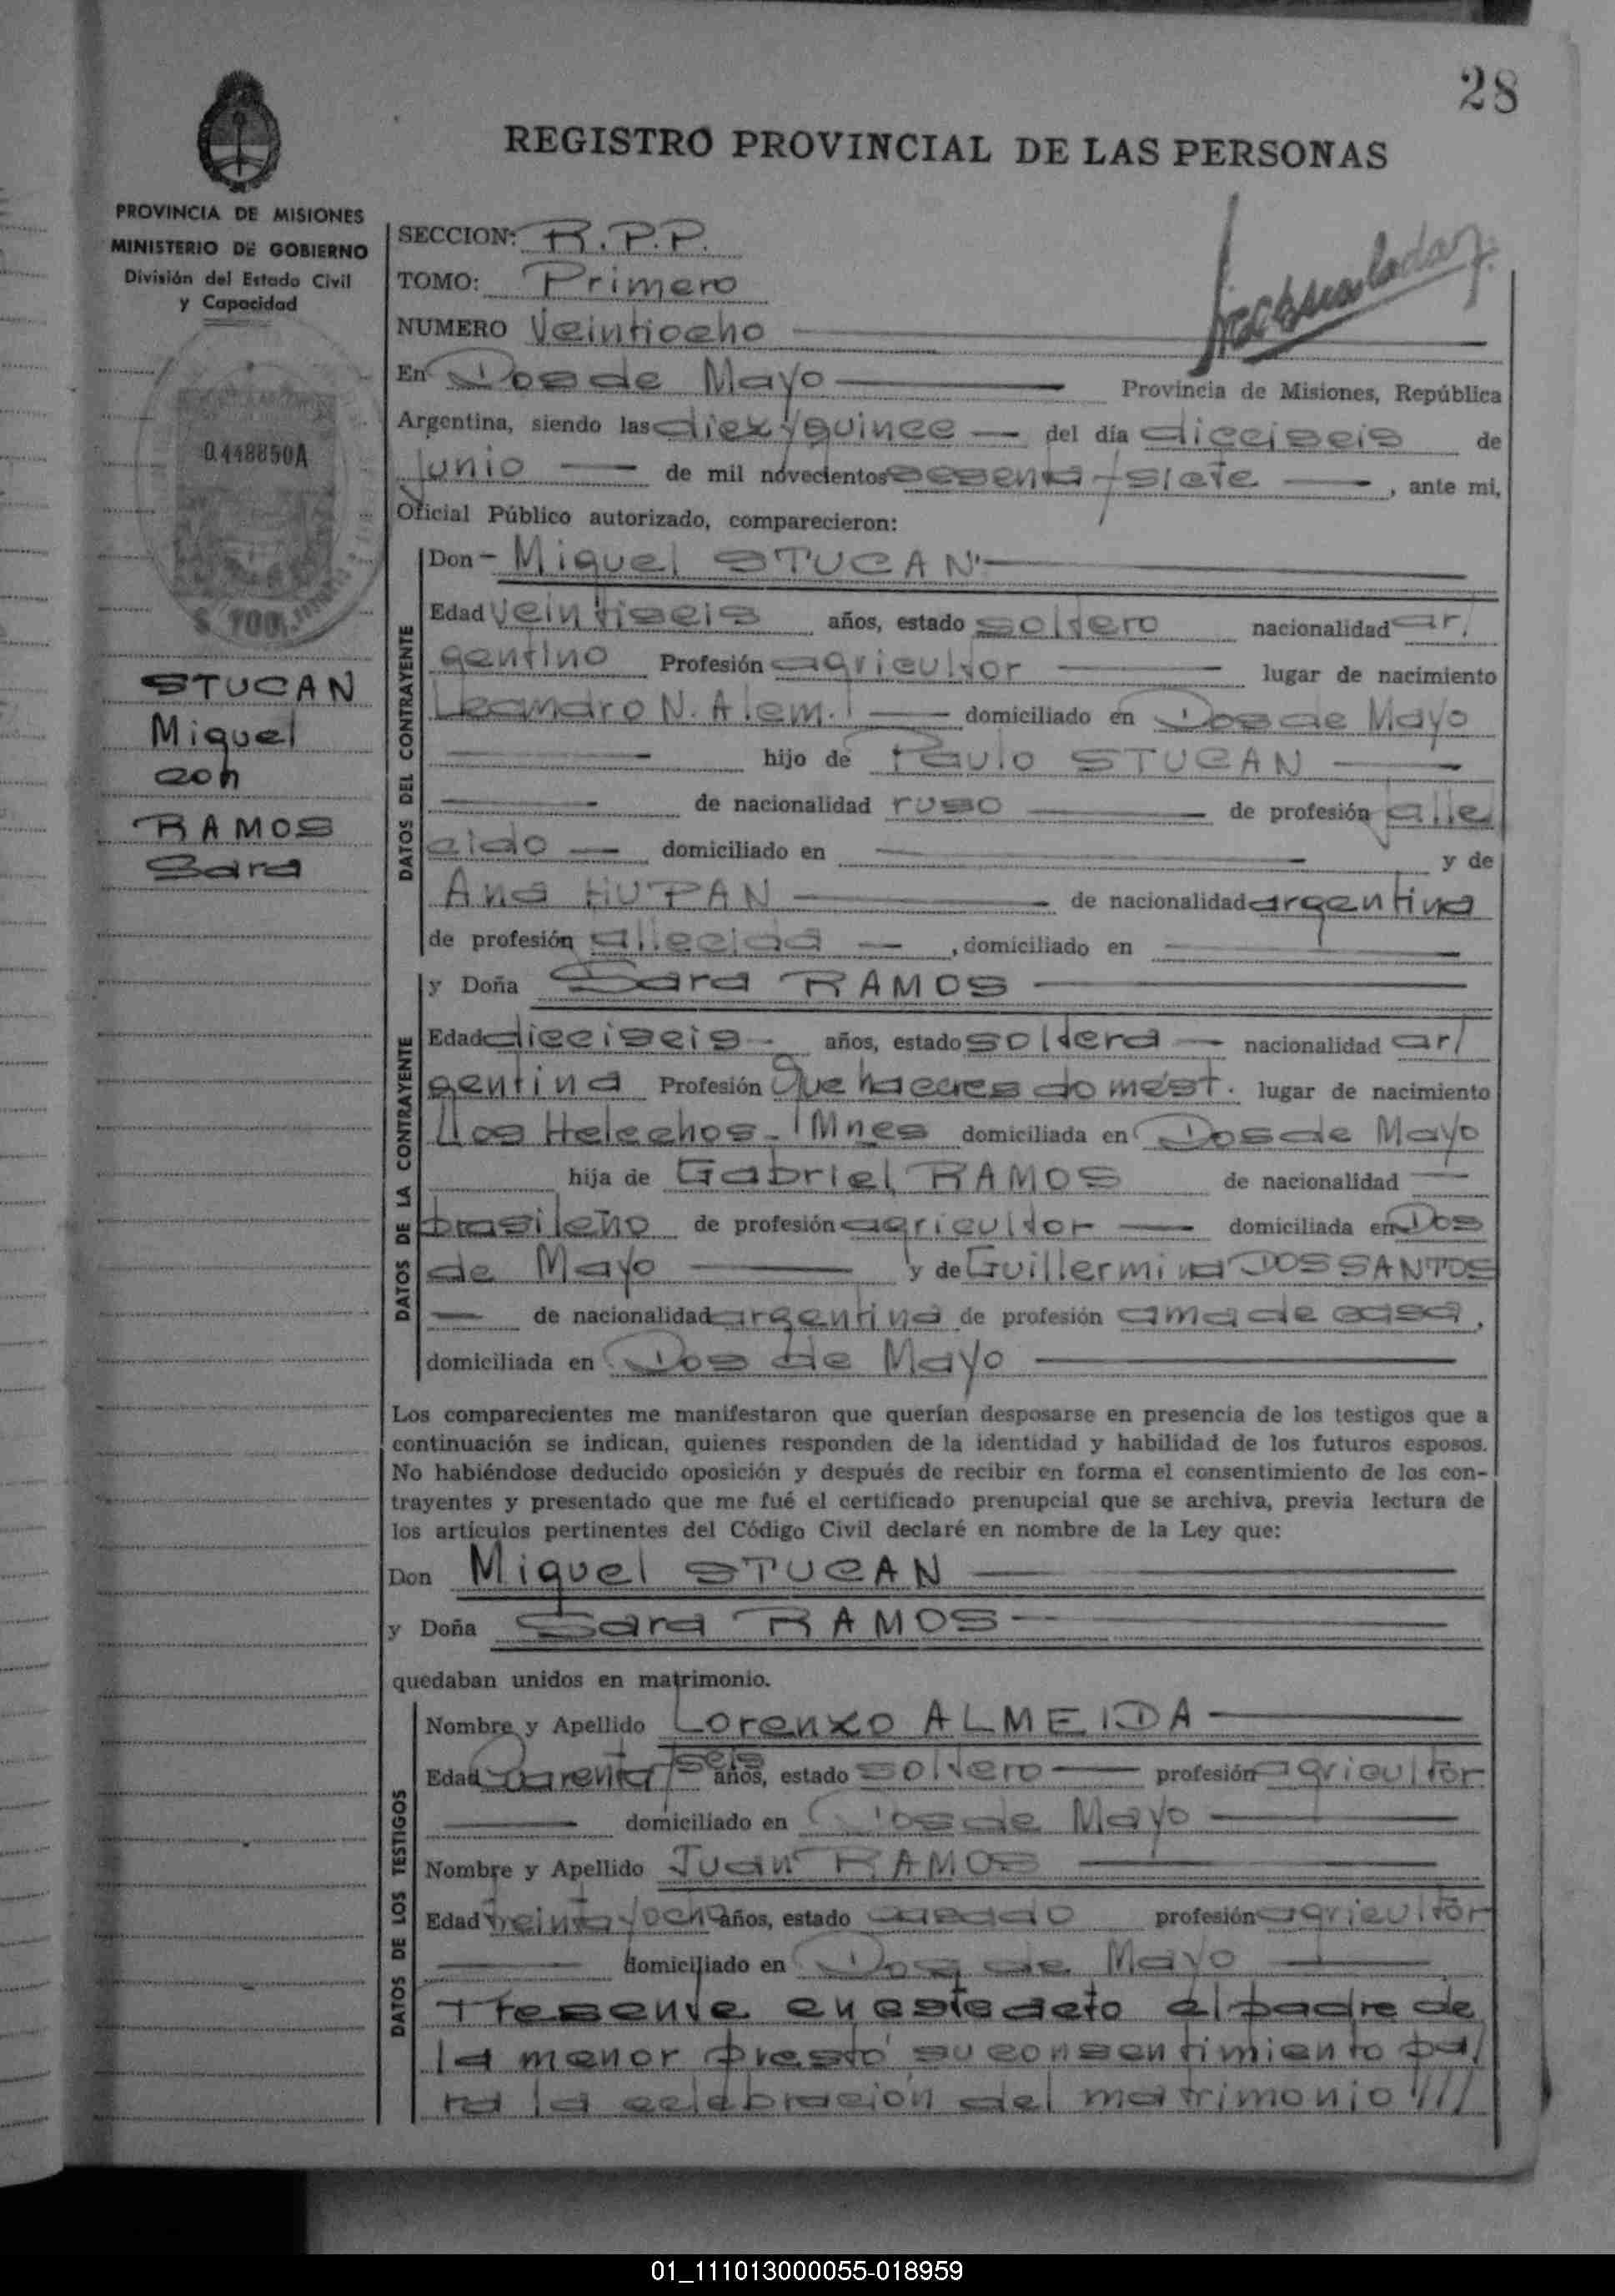 28
REGISTRO PROVINCIAL DE LAS PERSONAS
PROVINCIA DE MISIONES
MINISTERIO DE GOBIERNO
División del Estado Civil
y Capacidad
0.448850A
$ 100.
STUCAN
Miguel
con
RAMOS
Sara
SECCION: R.P.P.
TOMO: Primero
NUMERO Veintiocho
En Dos de Mayo Provincia de Misiones, República
Argentina, siendo las diez y quince del día dieciseis de
junio de mil novecientos sesenta y siete, ante mi,
Oficial Público autorizado, comparecieron:
DATOS DEL CONTRAYENTE
Don Miguel STUCAN
Edad veintiseis años, estado soltero nacionalidad ar/
gentino Profesión agricultor lugar de nacimiento
Leandro N. Alem. domiciliado en Dos de Mayo
hijo de Paulo STUCAN
de nacionalidad ruso de profesión falle
cido domiciliado en y de
Ana HUPAN de nacionalidad argentina
de profesión fallecida, domiciliado en
DATOS DE LA CONTRAYENTE
y Doña Sara RAMOS
Edad dieciseis años, estado soltera nacionalidad ar/
gentina Profesión Que haceres domést. lugar de nacimiento
Los Helechos - Mnes domiciliada en Dos de Mayo
hija de Gabriel RAMOS de nacionalidad
brasileño de profesión agricultor domiciliada en Dos
de Mayo y de Guillermina DOS SANTOS
de nacionalidad argentina de profesión ama de casa,
domiciliada en Dos de Mayo
Los comparecientes me manifestaron que querían desposarse en presencia de los testigos que a
continuación se indican, quienes responden de la identidad y habilidad de los futuros esposos.
No habiéndose deducido oposición y después de recibir en forma el consentimiento de los con-
trayentes y presentado que me fué el certificado prenupcial que se archiva, previa lectura de
los artículos pertinentes del Código Civil declaré en nombre de la Ley que:
Don Miguel STUCAN
y Doña Sara RAMOS
quedaban unidos en matrimonio.
DATOS DE LOS TESTIGOS
Nombre y Apellido Lorenzo ALMEIDA
Edad Cuarenta y seis años, estado soltero profesión agricultor
domiciliado en Dos de Mayo
Nombre y Apellido Juan RAMOS
Edad treinta y ocho años, estado casado profesión agricultor
domiciliado en Dos de Mayo
Presente en este acto el padre de
la menor prestó su consentimiento pa/
ra la celebración del matrimonio ///
01_111013000055-018959